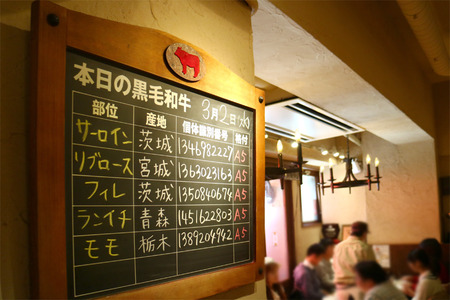 本日の黒毛和牛
3月2日(火)
部位 産地 個体識別番号 格付
サーロイン 茨城 1346982229 A5
リブロース 宮城 1363023163 A5
フィレ 茨城 1350840674 A5
ランイチ 青森 1451622803 A5
モモ 栃木 1389204942 A5